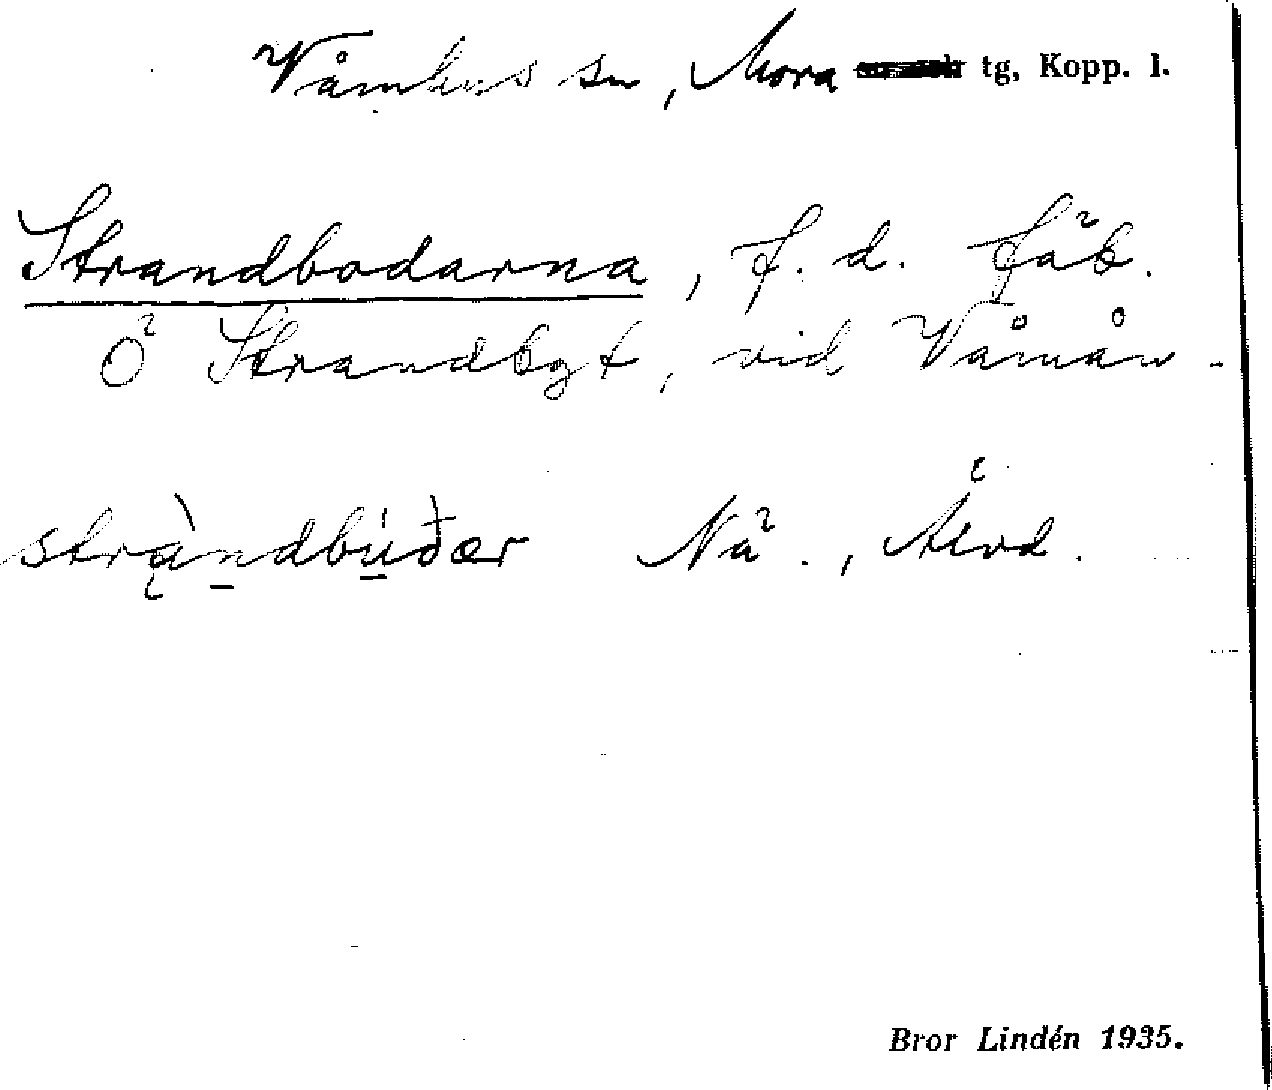 Våmhus sn, Mora tg, Kopp. l.
Strandbodarna, f. d. fäb.
Ö Strandbyt, vid Våmån.
strą̀ndbúðær Nä., Älvd.
Bror Lindén 1935.